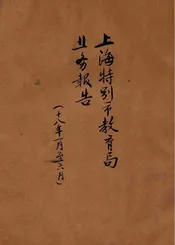 上海特别市教育局
业务报告
(十八年一月至六月)